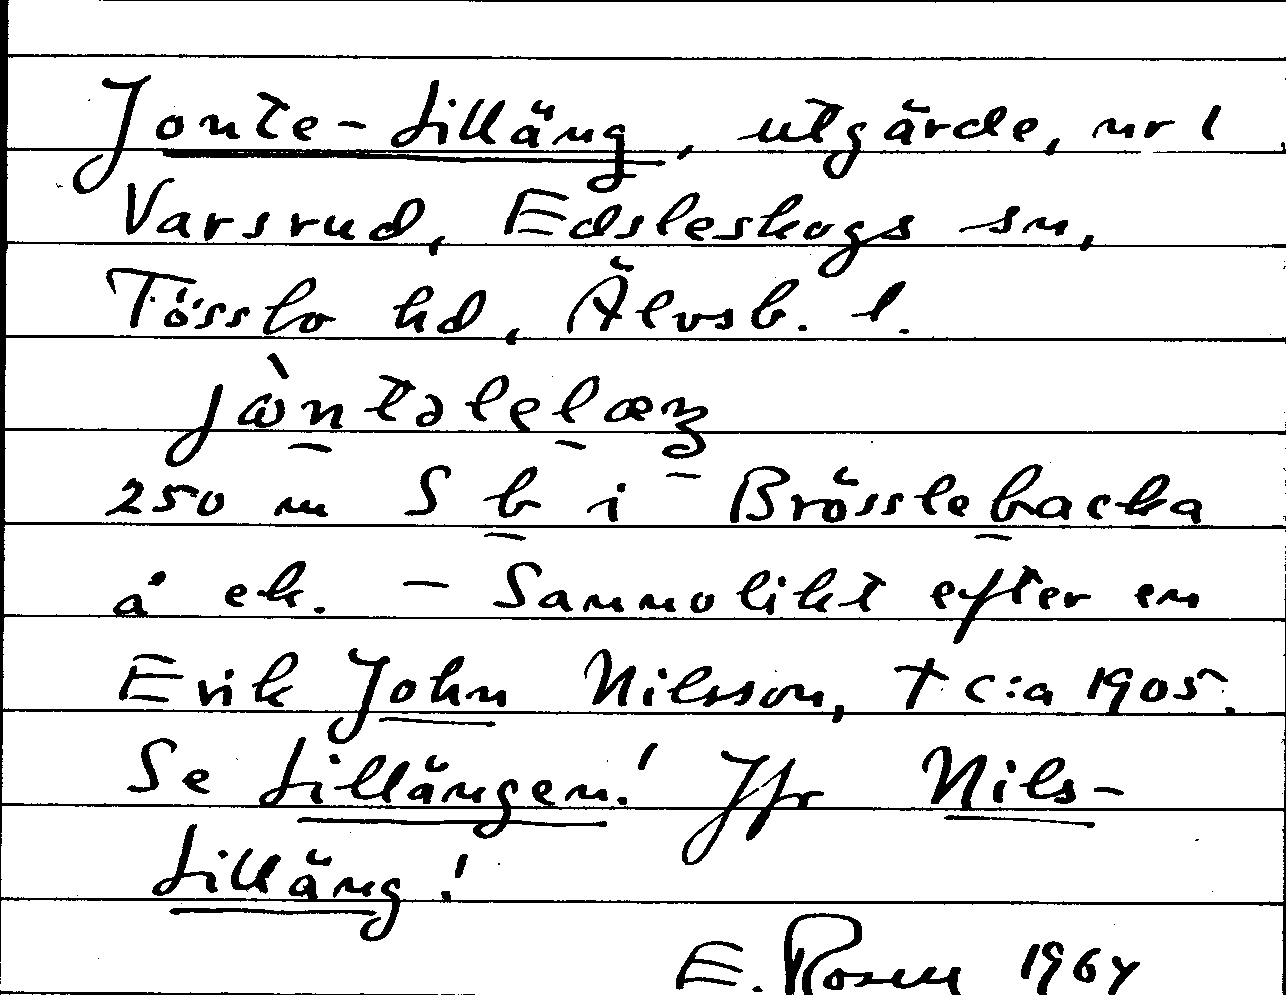 Jonte-Lilläng, utgärde, nr 1
Varsrud, Edsleskogs sn,
Tössbo hd, Älvsb. l.
250 m S b i Brösslebacka
å ek. - Sannolikt efter en
Erik John Nilsson, † c:a 1905.
Se Lillängen! Jfr Nils-
Lilläng!
E. Rosell 1964